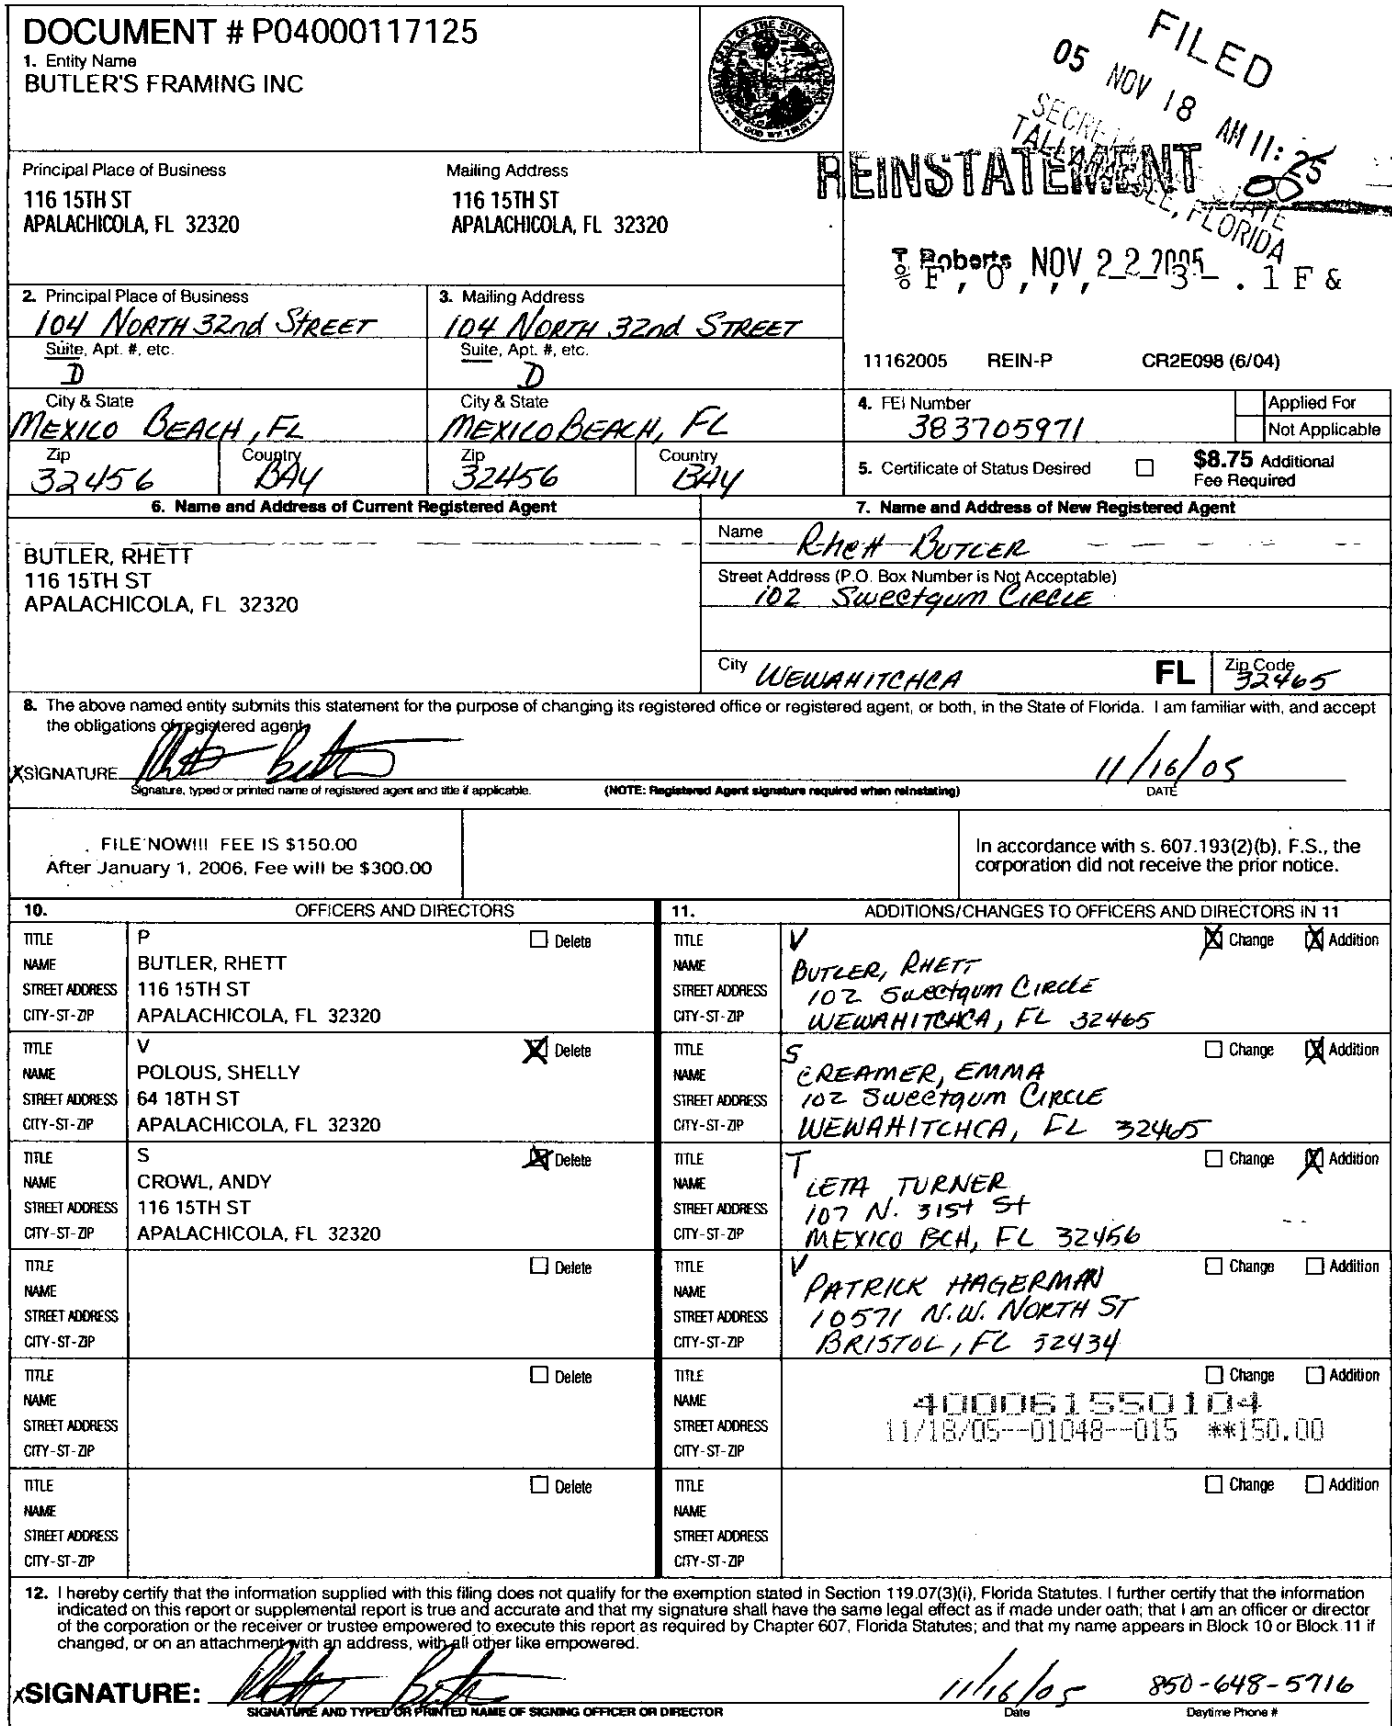 DOCUMENT # P04000117125
1. Entity Name
BUTLER'S FRAMING INC
GREAT SEAL OF THE STATE OF FLORIDA
IN GOD WE TRUST
FILED
05 NOV 18 AM 11: 25
00
TALLAHASSEE, FLORIDA
REINSTATEMENT
Principal Place of Business
116 15TH ST
APALACHICOLA, FL 32320
Mailing Address
116 15TH ST
APALACHICOLA, FL 32320
T Roberts NOV 22 2005
2. Principal Place of Business
104 NORTH 32nd STREET
Suite, Apt. #, etc.
D
City & State
MEXICO BEACH, FL
Zip
32456
Country
BAY
3. Mailing Address
104 NORTH 32nd STREET
Suite, Apt. #, etc.
D
City & State
MEXICO BEACH, FL
Zip
32456
Country
BAY
11162005 REIN-P CR2E098 (6/04)
4. FEI Number
383705971
Applied For
Not Applicable
5. Certificate of Status Desired
$8.75 Additional
Fee Required
6. Name and Address of Current Registered Agent
BUTLER, RHETT
116 15TH ST
APALACHICOLA, FL 32320
7. Name and Address of New Registered Agent
Name Rhett BUTLER
Street Address (P.O. Box Number is Not Acceptable)
102 Sweetgum CIRCLE
City WEWAHITCHCA FL Zip Code 32465
8. The above named entity submits this statement for the purpose of changing its registered office or registered agent, or both, in the State of Florida. I am familiar with, and accept
the obligations of registered agent.
XSIGNATURE Rhett Butler 11/16/05
Signature, typed or printed name of registered agent and title if applicable. (NOTE: Registered Agent signature required when reinstating) DATE
FILE NOW!!! FEE IS $150.00
After January 1, 2006, Fee will be $300.00
In accordance with s. 607.193(2)(b), F.S., the
corporation did not receive the prior notice.
10. OFFICERS AND DIRECTORS
TITLE P Delete
NAME BUTLER, RHETT
STREET ADDRESS 116 15TH ST
CITY-ST-ZIP APALACHICOLA, FL 32320
TITLE V X Delete
NAME POLOUS, SHELLY
STREET ADDRESS 64 18TH ST
CITY-ST-ZIP APALACHICOLA, FL 32320
TITLE S X Delete
NAME CROWL, ANDY
STREET ADDRESS 116 15TH ST
CITY-ST-ZIP APALACHICOLA, FL 32320
TITLE Delete
NAME
STREET ADDRESS
CITY-ST-ZIP
TITLE Delete
NAME
STREET ADDRESS
CITY-ST-ZIP
TITLE Delete
NAME
STREET ADDRESS
CITY-ST-ZIP
11. ADDITIONS/CHANGES TO OFFICERS AND DIRECTORS IN 11
TITLE V X Change X Addition
NAME BUTLER, RHETT
STREET ADDRESS 102 Sweetgum CIRCLE
CITY-ST-ZIP WEWAHITCHCA, FL 32465
TITLE S Change X Addition
NAME CREAMER, EMMA
STREET ADDRESS 102 Sweetgum CIRCLE
CITY-ST-ZIP WEWAHITCHCA, FL 32465
TITLE T Change X Addition
NAME LETA TURNER
STREET ADDRESS 107 N. 31st St
CITY-ST-ZIP MEXICO BCH, FL 32456
TITLE V Change Addition
NAME PATRICK HAGERMAN
STREET ADDRESS 10571 N.W. NORTH ST
CITY-ST-ZIP BRISTOL, FL 32434
TITLE Change Addition
NAME 400061550104
STREET ADDRESS 11/18/05--01048--015 **150.00
CITY-ST-ZIP
TITLE Change Addition
NAME
STREET ADDRESS
CITY-ST-ZIP
12. I hereby certify that the information supplied with this filing does not qualify for the exemption stated in Section 119.07(3)(i), Florida Statutes. I further certify that the information
indicated on this report or supplemental report is true and accurate and that my signature shall have the same legal effect as if made under oath; that I am an officer or director
of the corporation or the receiver or trustee empowered to execute this report as required by Chapter 607, Florida Statutes; and that my name appears in Block 10 or Block 11 if
changed, or on an attachment with an address, with all other like empowered.
XSIGNATURE: Rhett Butler 11/16/05 850-648-5716
SIGNATURE AND TYPED OR PRINTED NAME OF SIGNING OFFICER OR DIRECTOR Date Daytime Phone #